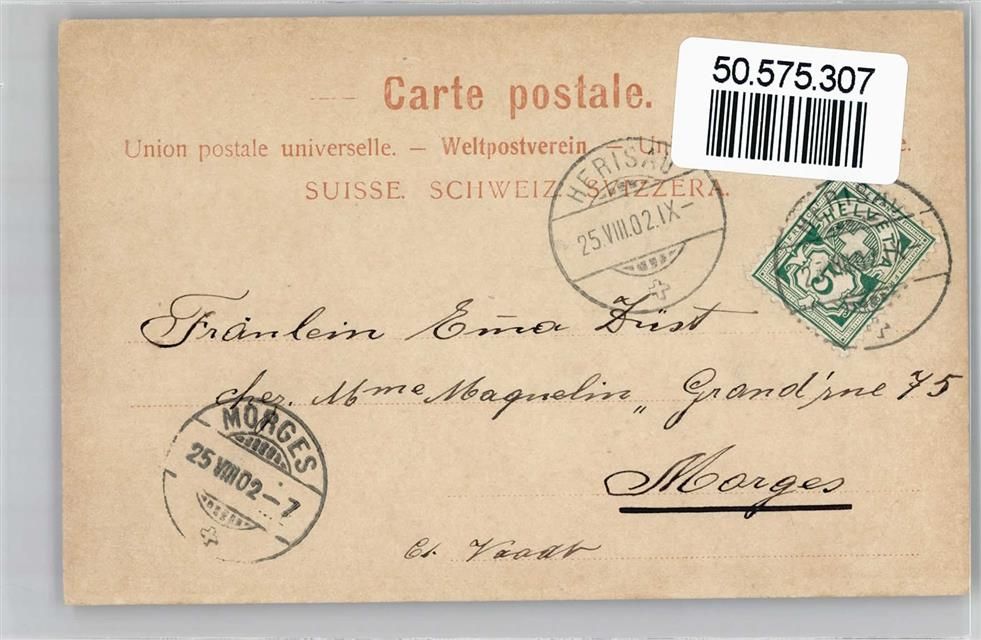 50.575.307
Carte postale.
Union postale universelle. — Weltpostverein — Un e.
SUISSE. SCHWEIZ. SVIZZERA.
HERISAU
25.VIII.02.IX—
HELVETIA
5
Fräulein Em̅a Düst
chez. Mme Maquelin „ Grand'rue 75
MORGES
25 VIII 02 – 7
Morges
Ct. Vaadt